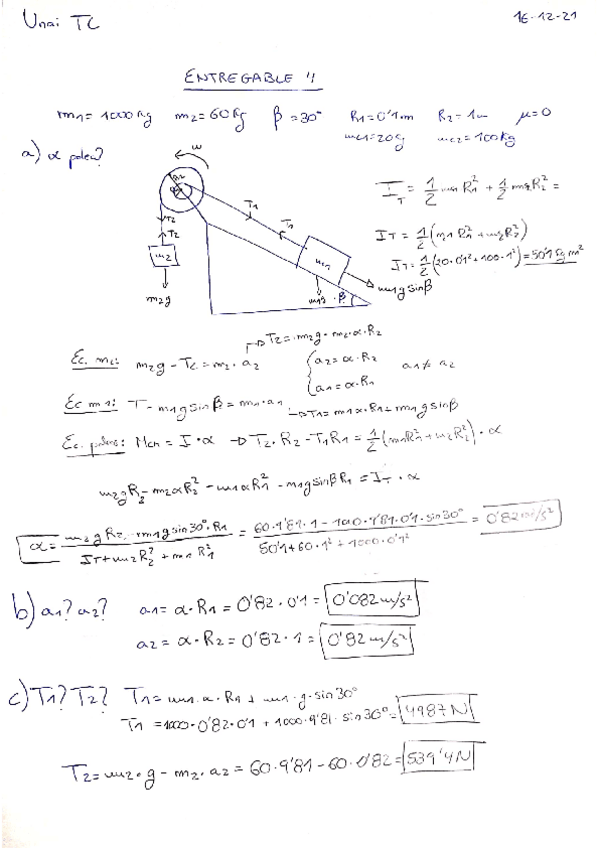 Unai TC
16-12-21
ENTREGABLE 4
m1 = 1000 Kg m2 = 60 Kg β = 30° R1 = 0'1m R2 = 1m μ = 0
mc1 = 20g mc2 = 100Kg
a) α polea?
w
R2
T1
T1
T2
T2
m2
m2g
m1
m1g
β
m1g sinβ
IT = 1/2 m1 R1² + 1/2 m2 R2² =
IT = 1/2 (m1 R1² + m2 R2²)
IT = 1/2 (20·0'1² + 100·1²) = 50'1 Kg m²
→ T2 = m2g - m2·α·R2
Ec. m2: m2g - T2 = m2·a2 { a2 = α·R2 a1 ≠ a2
a1 = α·R1
Ec m1: T - m1g sinβ = m1·a1 → T1 = m1α·R1 + m1g sinβ
Ec. polea: Mcn = I·α → T2·R2 - T1R1 = 1/2 (m1R1² + m2R2²)·α
m2gR2 - m2αR2² - m1αR1² - m1g sinβ R1 = IT·α
α = m2gR2 - m1g sin30°·R1 / IT + m2R2² + m1R1² = 60·9'81·1 - 1000·9'81·0'1·sin30° / 50'1 + 60·1² + 1000·0'1² = 0'82 m/s²
b) a1? a2? a1 = α·R1 = 0'82·0'1 = 0'082 m/s²
a2 = α·R2 = 0'82·1 = 0'82 m/s²
c) T1? T2? T1 = m1·α·R1 + m1·g·sin30°
T1 = 1000·0'82·0'1 + 1000·9'81·sin30° = 4987 N
T2 = m2·g - m2·a2 = 60·9'81 - 60·0'82 = 539'4 N